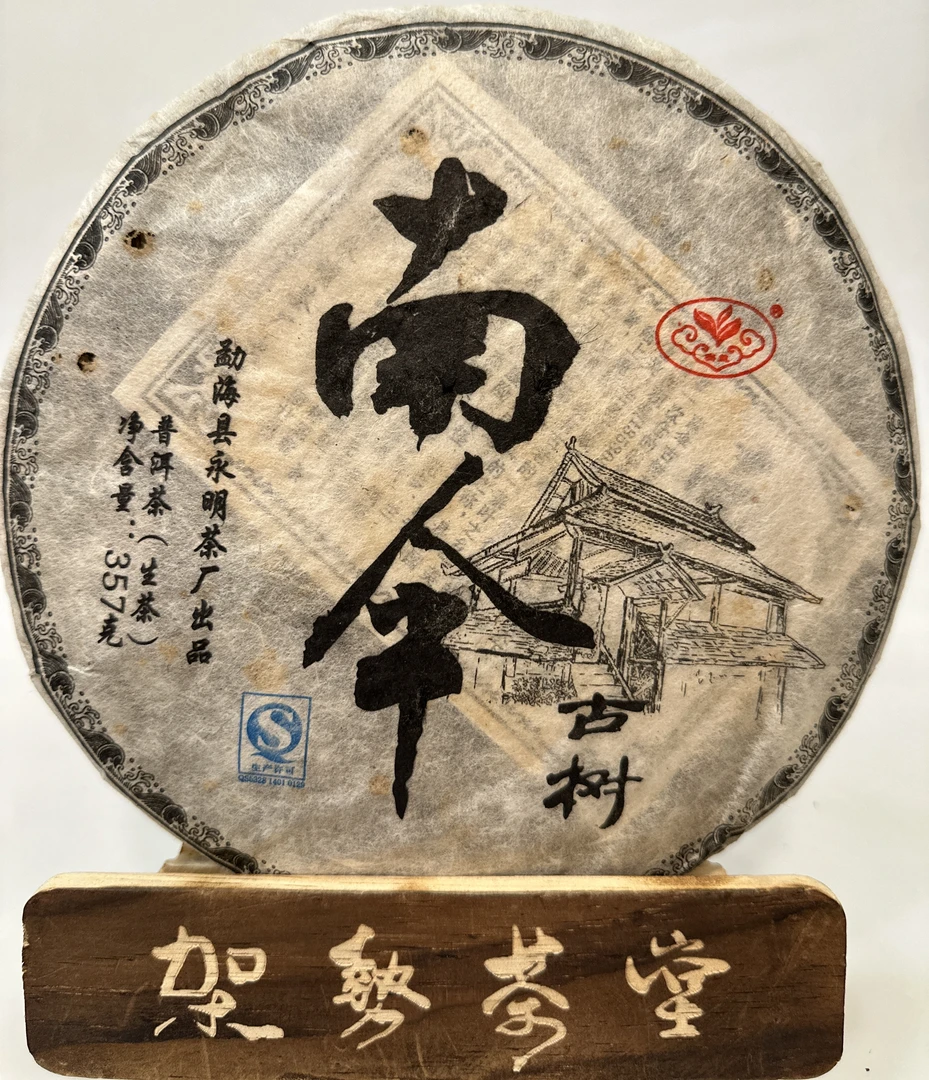 南伞
古树
勐海县永明茶厂出品
普洱茶（生茶）
净含量：357克
生产许可
架势茶堂